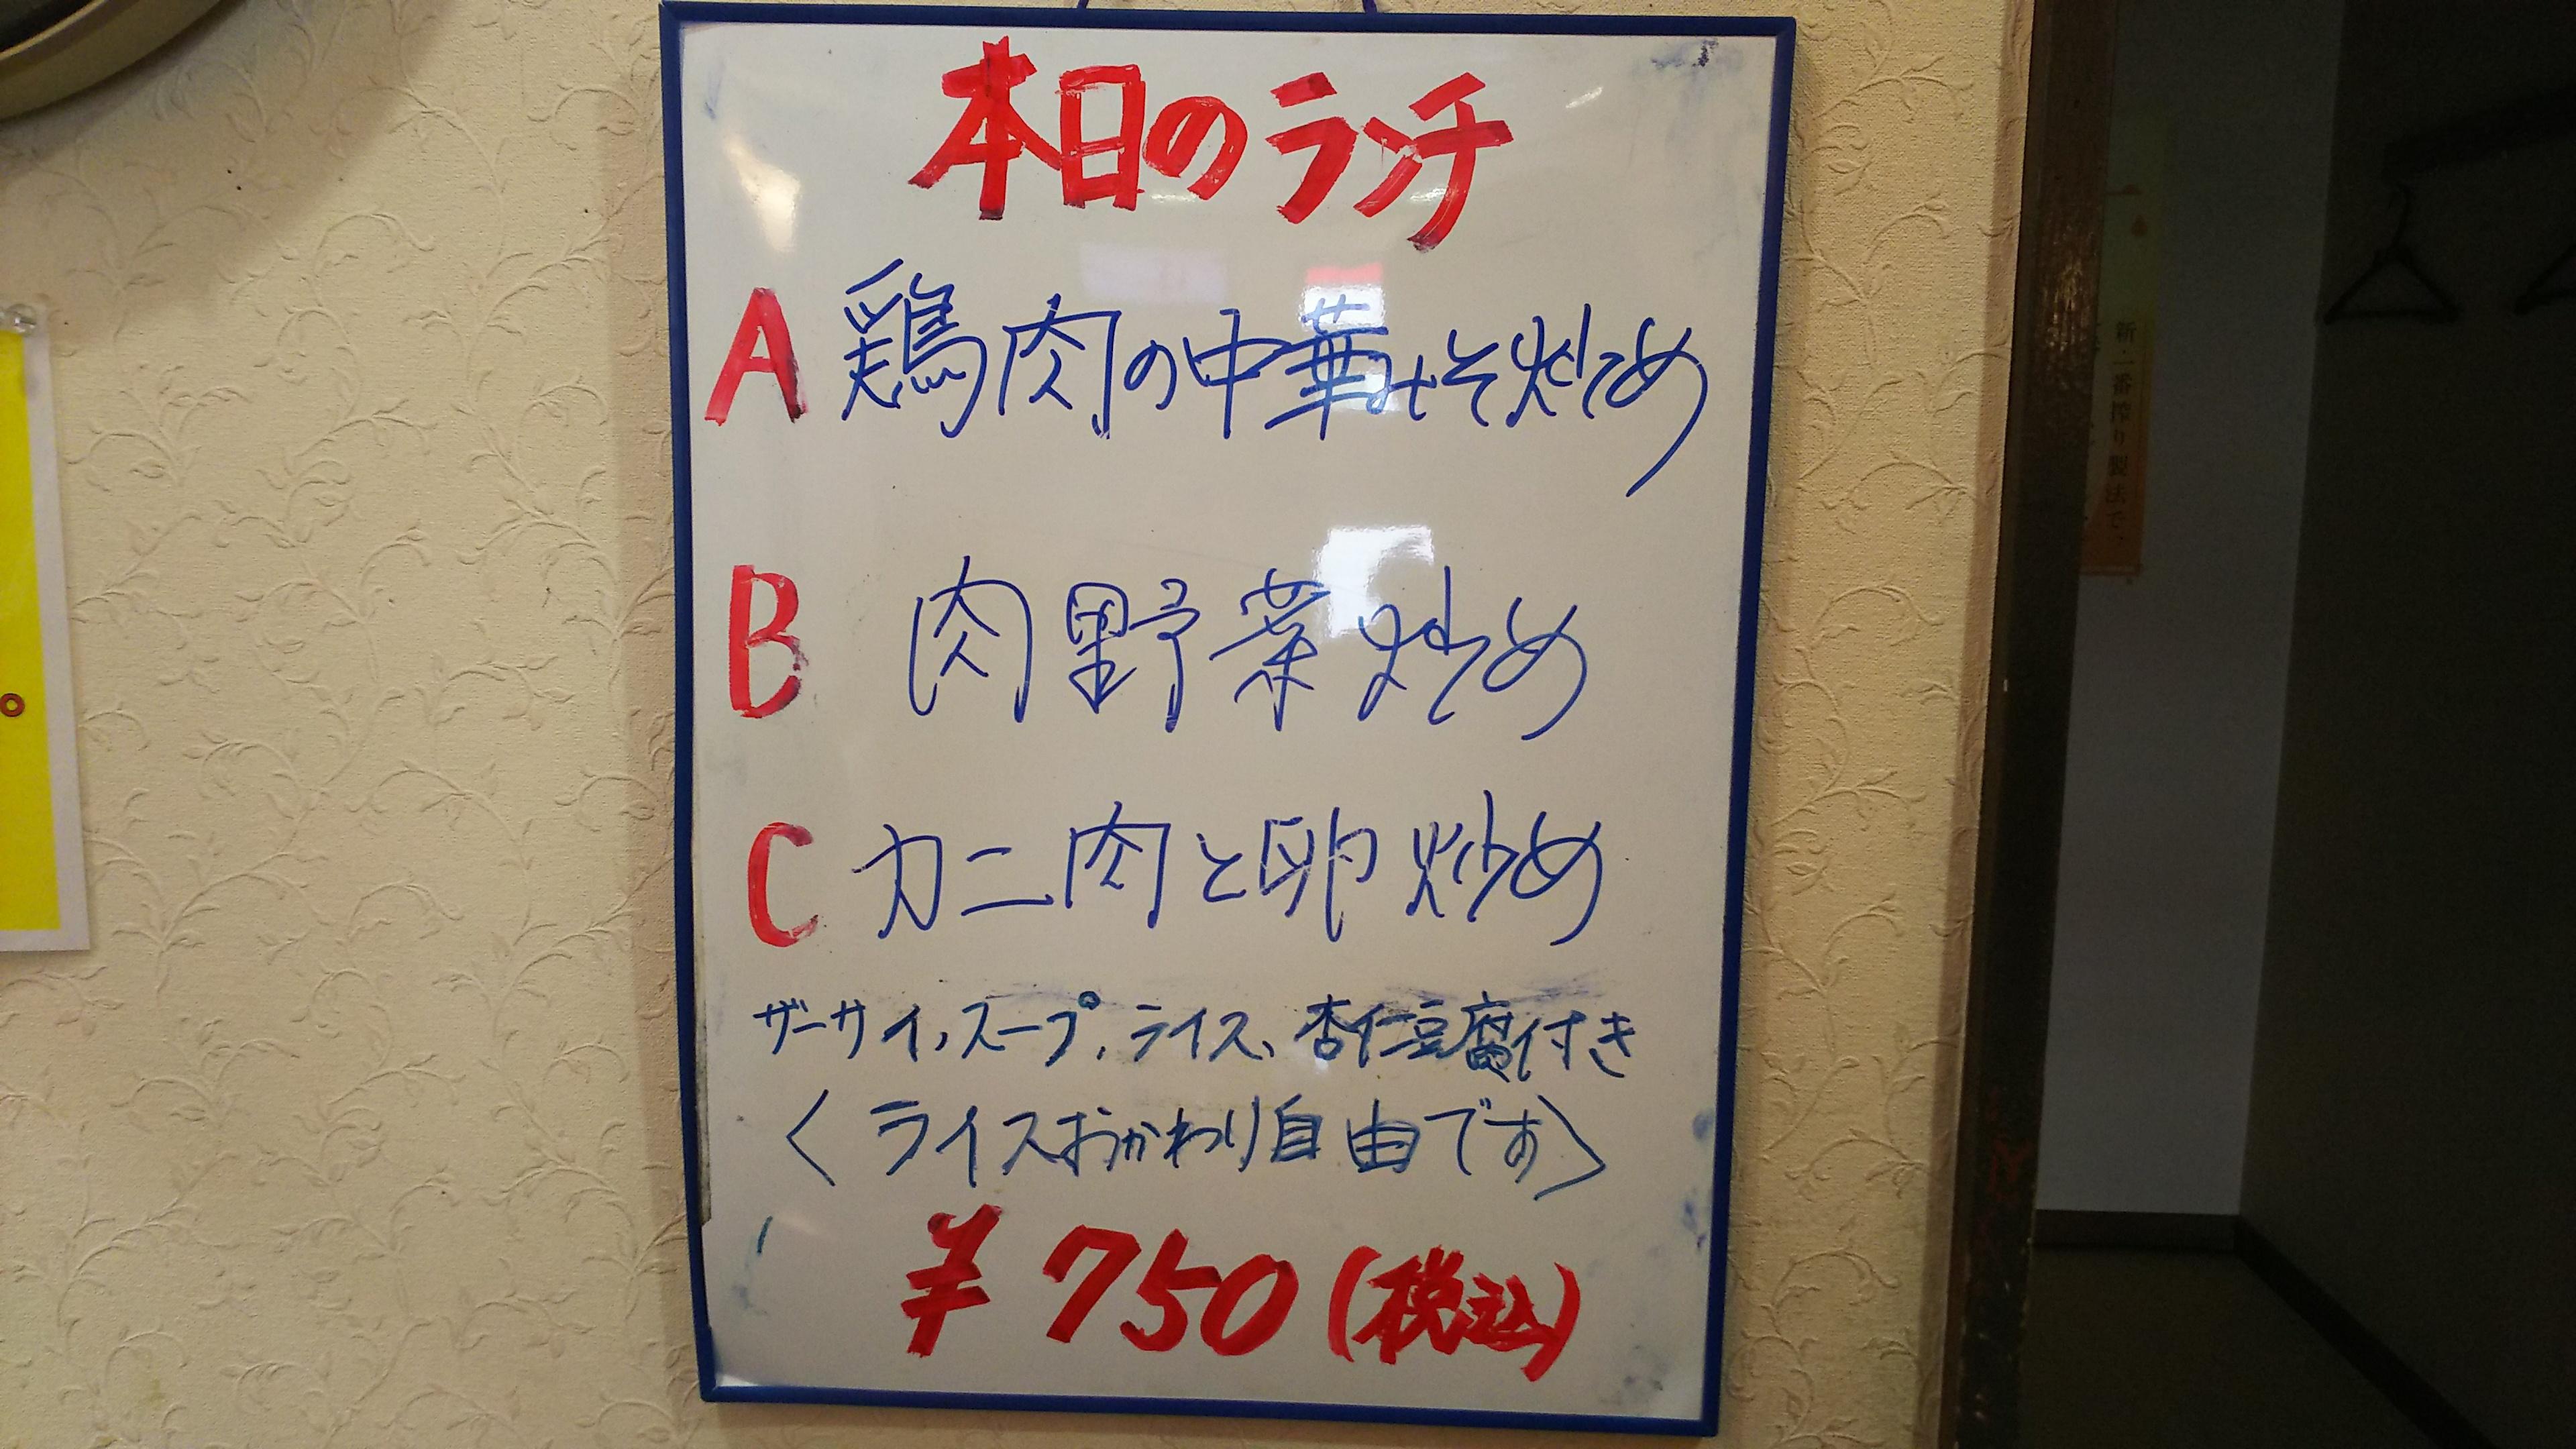 本日のランチ
A 鶏肉の中華みそ炒め
B 肉野菜炒め
C カニ肉と卵炒め
ザーサイ、スープ、ライス、杏仁豆腐付き
〈ライスおかわり自由です〉
¥750(税込)
新・一番搾り製法で、